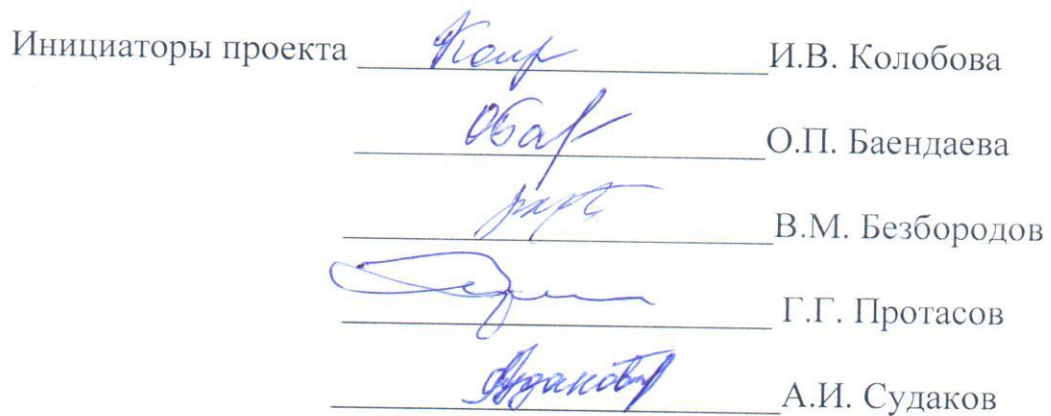 Инициаторы проекта И.В. Колобова
О.П. Баендаева
В.М. Безбородов
Г.Г. Протасов
А.И. Судаков